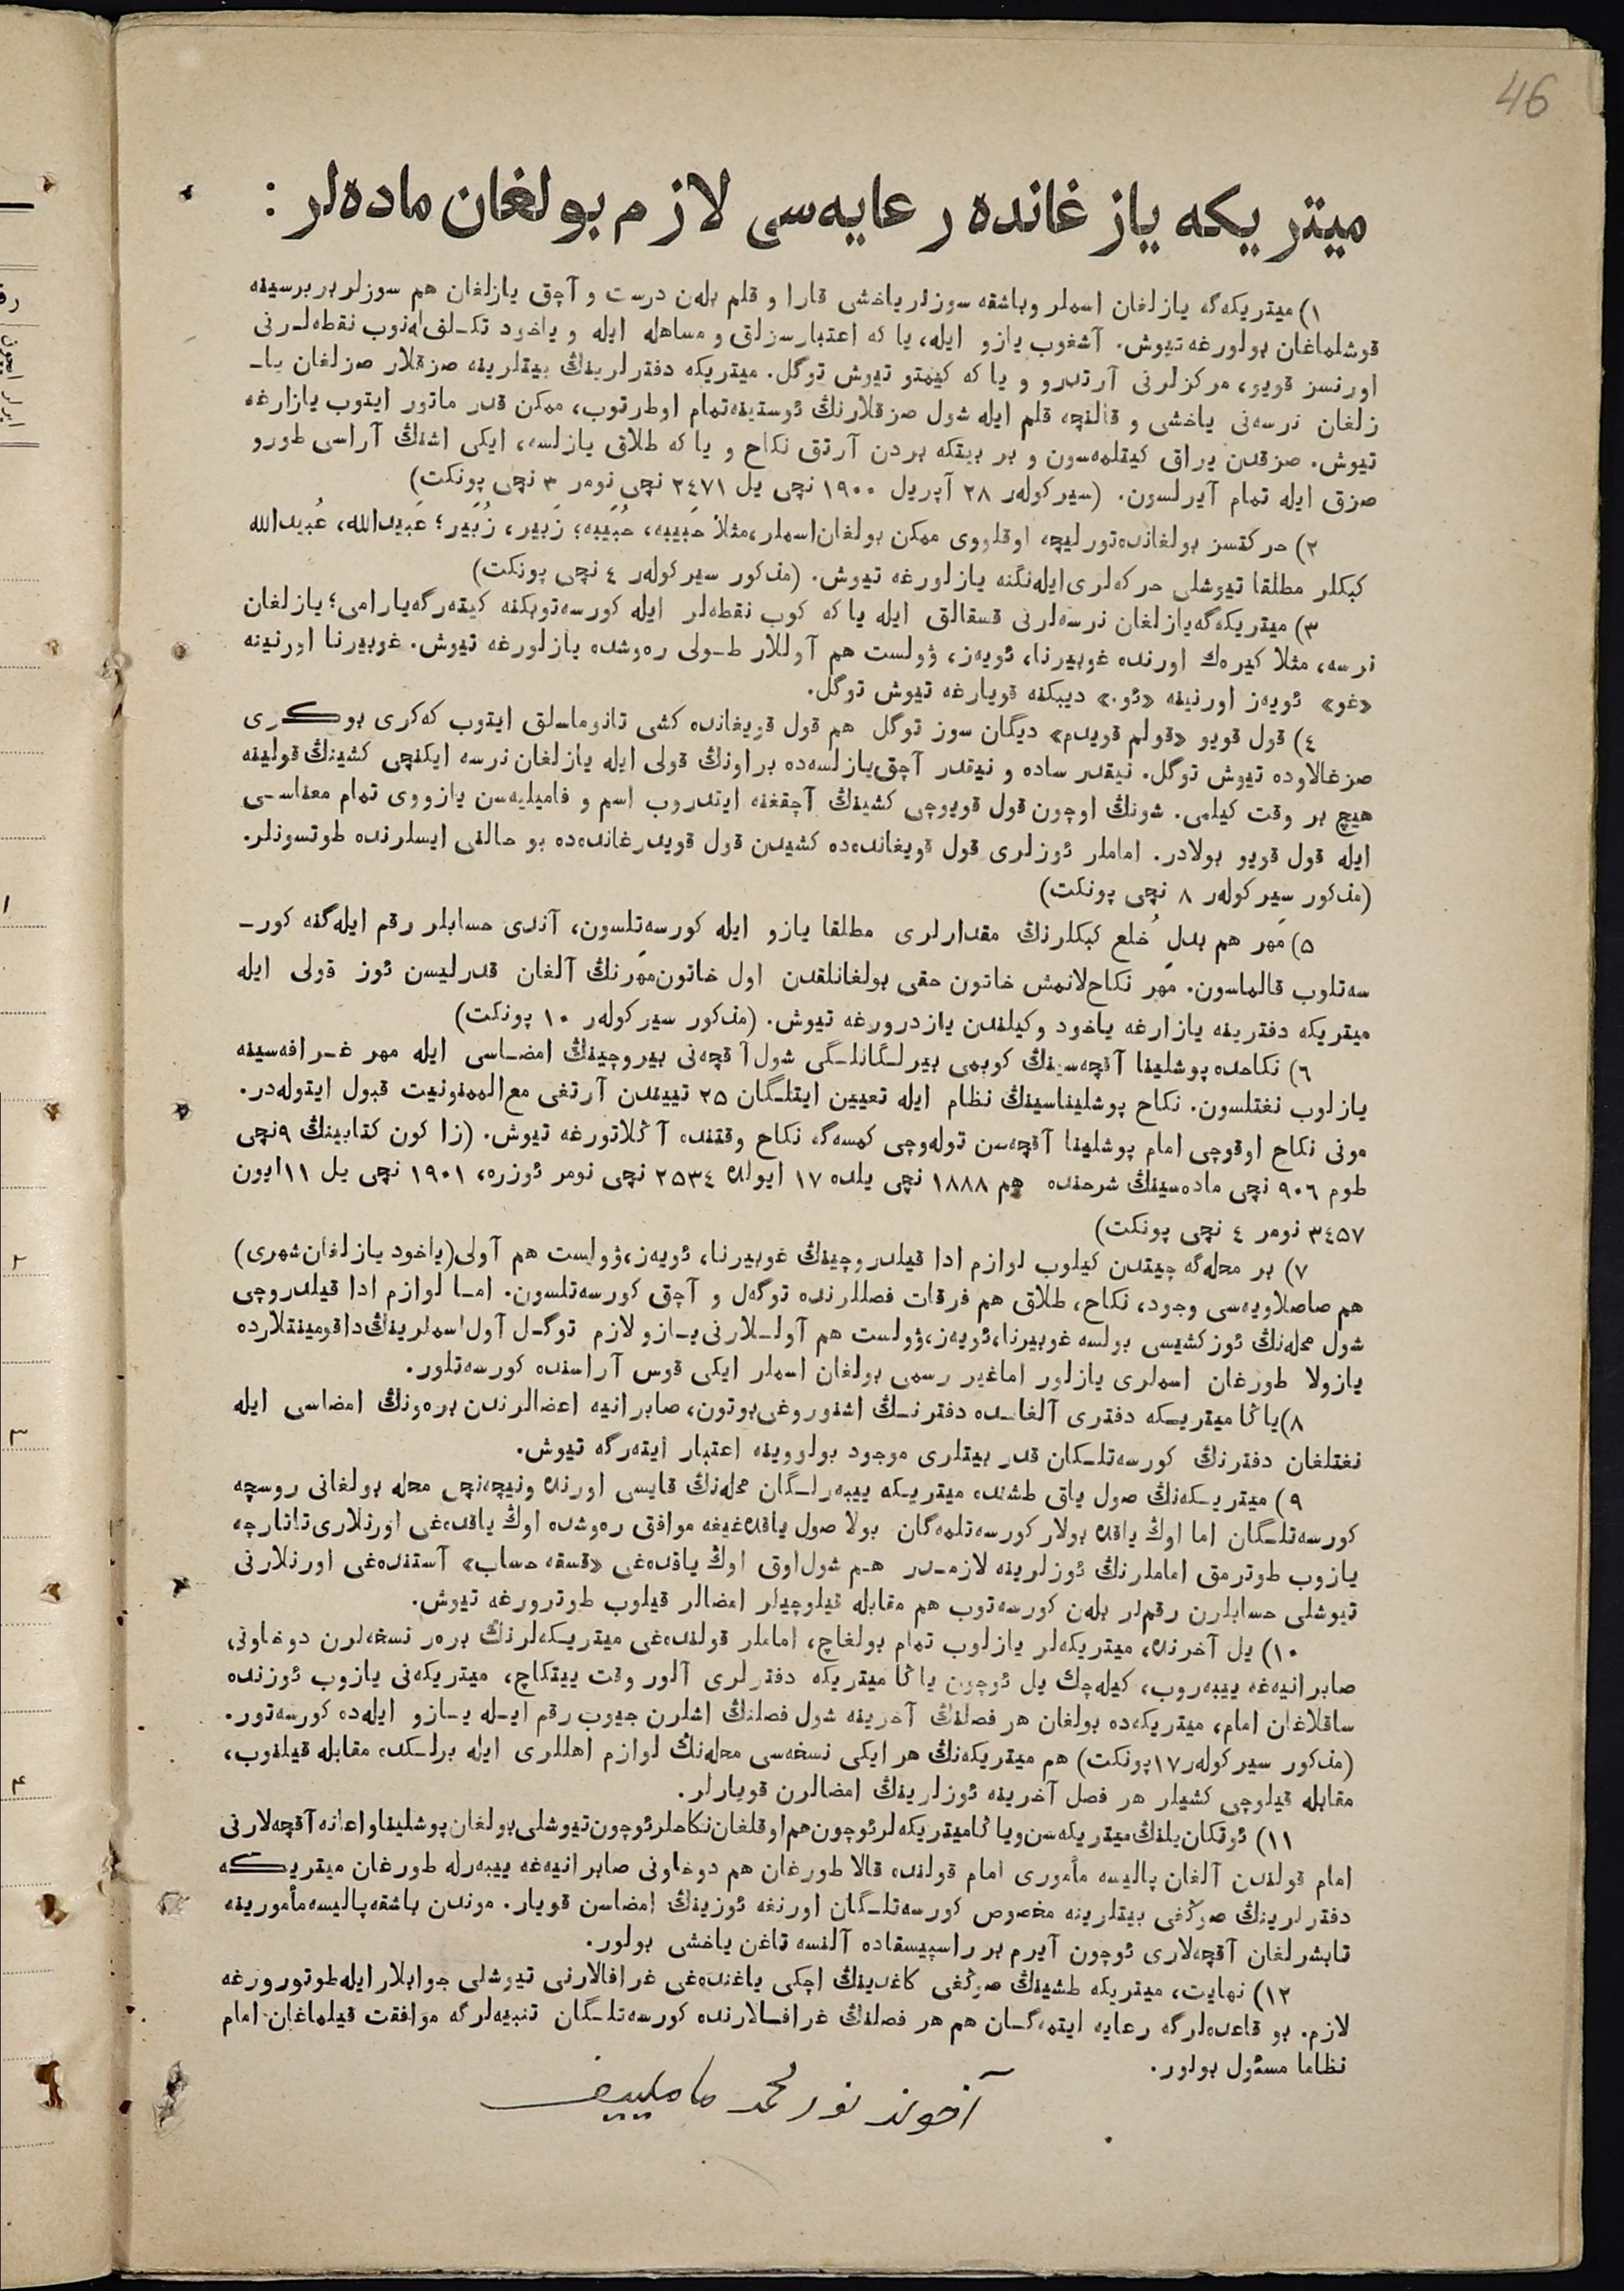 46
میتریکه یازغانده رعایه‌سی لازم بولغان ماده‌لر :
١) میتریکه‌گه یازلغان اسملر وباشقه سوزلر یاخشی قارا و قلم بله‌ن درست و آچق یازلغان هم سوزلر بربرسینه
قوشلماغان بولورغه تیوش. آشغوب یازو ایله، یا که اعتبارسزلق و مساهله ایله و یاخود تکـلف‌له‌نوب نقطه‌لـرنی
اورنسز قویو، مرکزلرنی آرتدرو و یا که کیمتو تیوش توگل. میتریکه دفترلرینڭ بیتلرینه صزقلار صزلغان یاـ
زلغان نرسه‌نی یاخشی و قالنچه قلم ایله شول صزقلارنڭ ئوستینه تمام اوطرتوب، ممکن قدر ماتور ایتوب یازارغه
تیوش. صزقدن یراق کیتلمه‌سون و بر بیتکه بردن آرتق نکاح و یا که طلاق یازلسه، ایکی اشنڭ آراسی طورو
صزق ایله تمام آیرلسون. (سیرکوله‌ر ٢٨ آپریل ١٩٠٠ نچی یل ٢٤٧١ نچی نومر ٣ نچی پونکت)
٢) حرکتسز بولغانده تورلیچه اوقلووی ممکن بولغان اسملر، مثلا حَبیبه، حُبَیبه؛ زَبیر، زُبَیر؛ عَبیدالله، عُبیدالله
کبکلر مطلقا تیوشلی حرکه‌لری ایله‌نگنه یازلورغه تیوش. (مذکور سیرکوله‌ر ٤ نچی پونکت)
٣) میتریکه‌گه یازلغان نرسه‌لرنی قسقالق ایله یا که کوب نقطه‌لر ایله کورسه‌توبکنه کیته‌رگه یارامی؛ یازلغان
نرسه، مثلا کیره‌ك اورنده غوبیرنا، ئویه‌ز، ۋولست هم آوللار طـولی ره‌وشده یازلورغه تیوش. غوبیرنا اورنینه
«غو» ئویه‌ز اورنینه «ئو.» دیبکنه قویارغه تیوش توگل.
٤) قول قویو «قولم قویدم» دیگان سوز توگل هم قول قویغانده کشی تانوماسلق ایتوب که‌کری بوکری
صزغالاوده تیوش توگل. نیقدر ساده و نیقدر آچق یازلسه‌ده براونڭ قولی ایله یازلغان نرسه ایکنچی کشینڭ قولینه
هیچ بر وقت کیلمی. شونڭ اوچون قول قویوچی کشینڭ آچقغنه ایتدروب اسم و فامیلیه‌سن یازووی تمام معناسـی
ایله قول قویو بولادر. اماملر ئوزلری قول قویغانده‌ده کشیدن قول قویدرغانده‌ده بو حالنی ایسلرنده طوتسونلر.
(مذکور سیرکوله‌ر ٨ نچی پونکت)
۵) مَهر هم بدل خُلع کبکلرنڭ مقدارلری مطلقا یازو ایله کورسه‌تلسون، آندی حسابلر رقم ایله‌گنه کورـ
سه‌تلوب قالماسون. مهر نکاح‌لانمش خاتون حقی بولغانلقدن اول خاتون مهرنڭ آلغان قدرلیسن ئوز قولی ایله
میتریکه دفترینه یازارغه یاخود وکیلندن یازدرورغه تیوش. (مذکور سیرکوله‌ر ١٠ پونکت)
٦) نکاحده پوشلینا آقچه‌سینڭ کوبمی بیرلـگانلـگی شول آقچه‌نی بیروچینڭ امضـاسی ایله مهر غـرافه‌سینه
یازلوب نغتلسون. نکاح پوشلیناسینڭ نظام ایله تعیین ایتلـگان ٢۵ تییندن آرتغی مع‌الممنونیت قبول ایتوله‌در.
مونی نکاح اوقوچی امام پوشلینا آقچه‌سن توله‌وچی کمسه‌گه نکاح وقتنده آڭلاتورغه تیوش. (زاکون کتابینڭ ٩نچی
طوم ٩٠٦ نچی ماده‌سینڭ شرحنده هم ١٨٨٨ نچی یلده ١٧ ایولده ٢۵٣٤ نچی نومر ئوزره، ١٩٠١ نچی یل ١١ایون
٣٤۵٧ نومر ٤ نچی پونکت)
٧) بر محله‌گه چیتدن کیلوب لوازم ادا قیلدروچینڭ غوبیرنا، ئویه‌ز، ۋولست هم آولی (یاخود یازلغان شهری)
هم صاصلاویه‌سی وجود، نکاح، طلاق هم فرقات فصللرنده توگه‌ل و آچق کورسه‌تلسون. امـا لوازم ادا قیلدروچی
شول محله‌نڭ ئوز کشیسی بولسه غوبیرنا، ئویه‌ز، ۋولست هم آولـلارنی یـازو لازم توگـل آول اسملرینڭ داقومینتلارده
یازولا طورغان اسملری یازلور اما غیر رسمی بولغان اسملر ایکی قوس آراسنده کورسه‌تلور.
٨) یاڭا میتریـکه دفتری آلغانـده دفترنـڭ اشنوروغی بوتون، صابرانیه اعضالرندن بره‌ونڭ امضاسی ایله
نغتلغان دفترنڭ کورسه‌تلـکان قدر بیتلری موجود بولووینه اعتبار ایته‌رگه تیوش.
٩) میتریـکه‌نڭ صول یاق طشنده میتریـکه ییبه‌رلـگان محله‌نڭ قایسی اورنده ونیچه‌نچی محله بولغانی روسچه
کورسه‌تلـگان اما اوڭ یاقده بولار کورسه‌تلمه‌گان بولا صول یاقده‌غیغه موافق ره‌وشده اوڭ یاقده‌غی اورنلاری تاتارچه
یازوب طوترمق اماملرنڭ ئوزلرینه لازمـدر هـم شول اوق اوڭ یاقده‌غی «قسقه حساب» آستنده‌غی اورنلارنی
تیوشلی حسابلرن رقم‌لر بله‌ن کورسه‌توب هم مقابله قیلوچیلر امضالر قیلوب طوترورغه تیوش.
١٠) یل آخرنده، میتریکه‌لر یازلوب تمام بولغاچ، اماملر قولنده‌غی میتریـکه‌لرنڭ بره‌ر نسخه‌لرن دوخاونی
صابرانیه‌غه ییبه‌روب، کیله‌چك یل ئوچون یاڭا میتریکه دفترلری آلور وقت ییتکاچ، میتریکه‌نی یازوب ئوزنده
ساقلاغان امام، میتریکه‌ده بولغان هر فصلنڭ آخرینه شول فصلنڭ اشلرن جیوب رقم ایـله یـازو ایله‌ده کورسه‌تور.
(مذکور سیرکوله‌ر ١٧پونکت) هم میتریکه‌نڭ هر ایکی نسخه‌سی محله‌نڭ لوازم اهللری ایله برلـکده مقابله قیلنوب،
مقابله قیلوچی کشیلر هر فصل آخرینه ئوزلرینڭ امضالرن قویارلر.
١١) ئوتکان یلنڭ میتریکه‌سن ویاڭا میتریکه‌لر ئوچون هم اوقلغان نکاحلر ئوچون تیوشلی بولغان پوشلینا و اعانه آقچه‌لارنی
امام قولندن آلغان پالیسه مأموری امام قولنده قالا طورغان هم دوخاونی صابرانیه‌غه ییبه‌رله طورغان میتریـکه
دفترلرینڭ صوڭغی بیتلرینه مخصوص کورسه‌تلـگان اورنغه ئوزینڭ امضاسن قویار. موندن باشقه پالیسه مأمورینه
تابشرلغان آقچه‌لاری ئوچون آیرم بر راسپیسقاده آلنسه تاغن یاخشی بولور.
١٢) نهایت، میتریکه طشینڭ صوڭغی کاغدینڭ اچکی یاغنده‌غی غرافالارنی تیوشلی جوابلار ایله طوتورورغه
لازم. بو قاعده‌لرگه رعایه ایتمه‌گـان هم هر فصلنڭ غرافـالارنده کورسه‌تلـگان تنبیه‌لرگه موافقت قیلماغان امام
نظاما مسئول بولور.
آخوند نورمحمد ماملییف